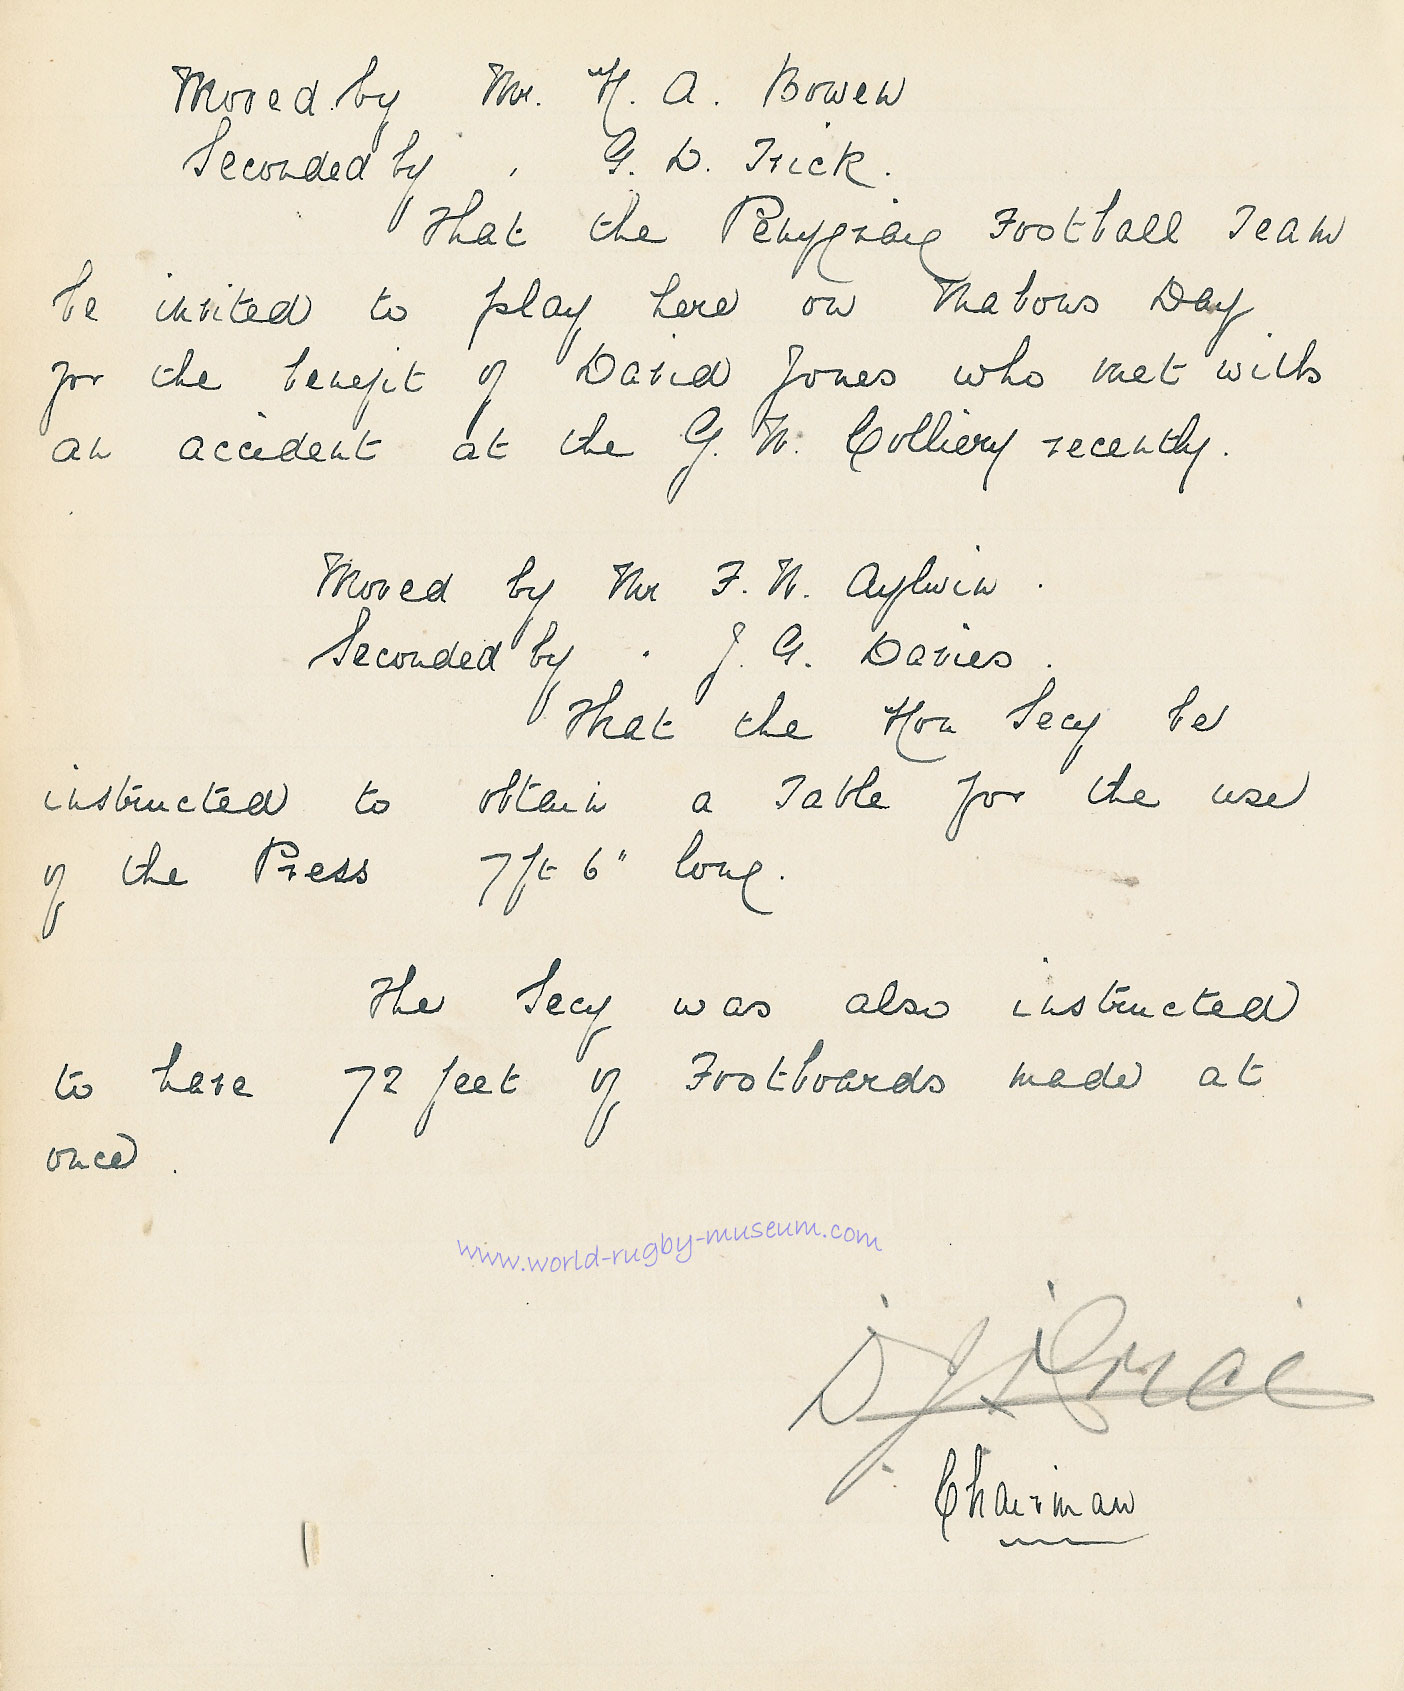 Moved by Mr. H. A. Bowen
Seconded by , G. D. Trick.
That the Penygraig Football Team
be invited to play here on Mabons Day
for the benefit of David Jones who met with
an accident at the G. W. Colliery recently.
Moved by Mr F. W. Aylwin.
Seconded by . J. G. Davies.
That the Hon Secy be
instructed to obtain a Table for the use
of the Press 7 ft 6" long.
The Secy was also instructed
to have 72 feet of Footboards made at
once.
www.world-rugby-museum.com
Chairman